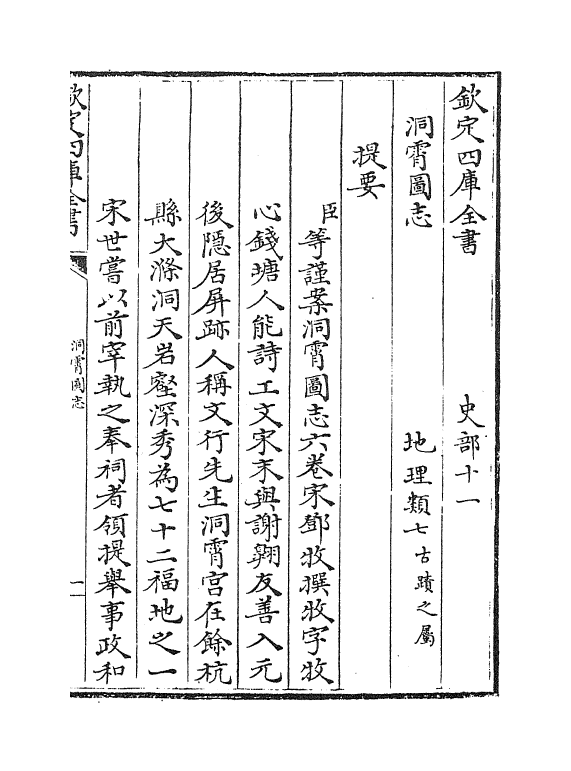 欽定四庫全書　史部十一
洞霄圖志　地理類七古蹟之屬
提要
臣等謹案洞霄圖志六卷宋鄧牧撰牧字牧
心錢塘人能詩工文宋末與謝翶友善入元
後隱居屏跡人稱文行先生洞霄宫在餘杭
縣大滌洞天岩壑深秀為七十二福地之一
宋世嘗以前宰執之奉祠者領提舉事政和
欽定四庫全書
洞霄圖志
一